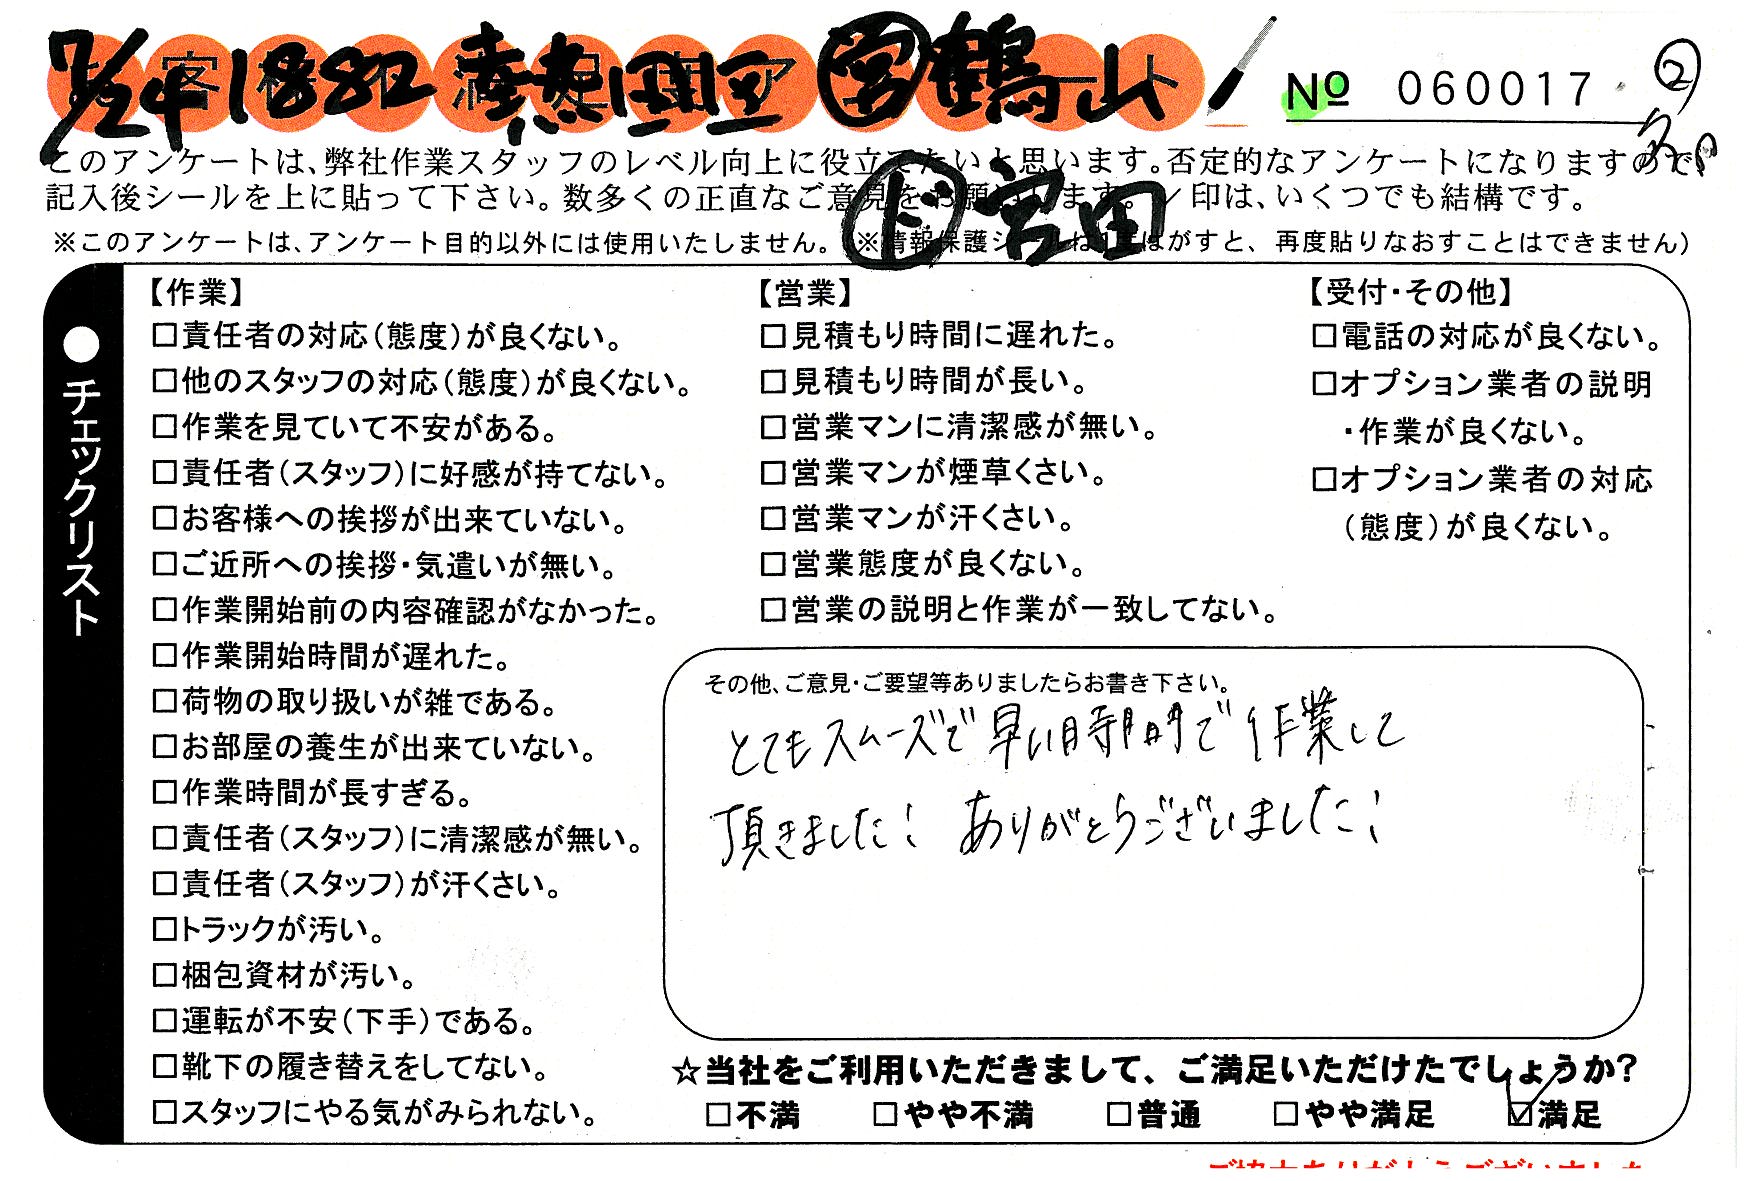 7/24 1882 熱田 宮 鶴山
No 060017 ②
このアンケートは、弊社作業スタッフのレベル向上に役立てたいと思います。否定的なアンケートになりますので、
記入後シールを上に貼って下さい。数多くの正直なご意見をお願いします。✓印は、いくつでも結構です。
宮田
※このアンケートは、アンケート目的以外には使用いたしません。(※情報保護シールは1度はがすと、再度貼りなおすことはできません)
●チェックリスト
【作業】
□責任者の対応(態度)が良くない。
□他のスタッフの対応(態度)が良くない。
□作業を見ていて不安がある。
□責任者(スタッフ)に好感が持てない。
□お客様への挨拶が出来ていない。
□ご近所への挨拶・気遣いが無い。
□作業開始前の内容確認がなかった。
□作業開始時間が遅れた。
□荷物の取り扱いが雑である。
□お部屋の養生が出来ていない。
□作業時間が長すぎる。
□責任者(スタッフ)に清潔感が無い。
□責任者(スタッフ)が汗くさい。
□トラックが汚い。
□梱包資材が汚い。
□運転が不安(下手)である。
□靴下の履き替えをしてない。
□スタッフにやる気がみられない。
【営業】
□見積もり時間に遅れた。
□見積もり時間が長い。
□営業マンに清潔感が無い。
□営業マンが煙草くさい。
□営業マンが汗くさい。
□営業態度が良くない。
□営業の説明と作業が一致してない。
【受付・その他】
□電話の対応が良くない。
□オプション業者の説明
・作業が良くない。
□オプション業者の対応
(態度)が良くない。
その他、ご意見・ご要望等ありましたらお書き下さい。
とてもスムーズで早い時間で作業して
頂きました! ありがとうございました!
☆当社をご利用いただきまして、ご満足いただけたでしょうか?
□不満 □やや不満 □普通 □やや満足 ☑満足
ご協力ありがとうございました